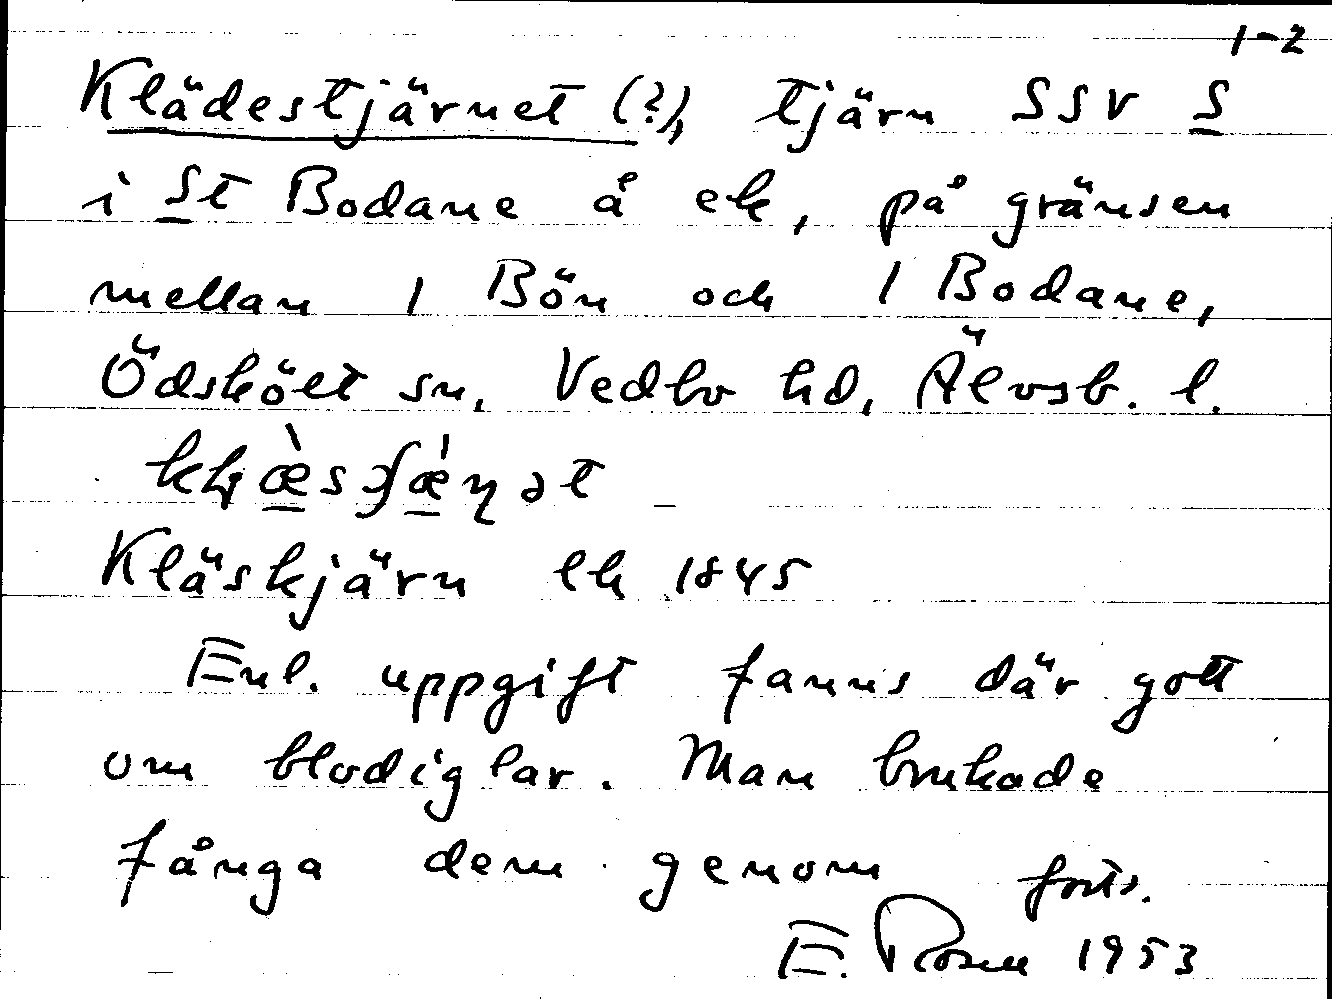 1-2
Klädestjärnet (?), tjärn SSV S
i St Bodane å ek, på gränsen
mellan 1 Bön och 1 Bodane,
Ödskölt sn, Vedbo hd, Älvsb. l.
Kläskjärn lk 1845
Enl. uppgift fanns där gott
om blodiglar. Man brukade
fånga dem genom forts.
E. Rosell 1953